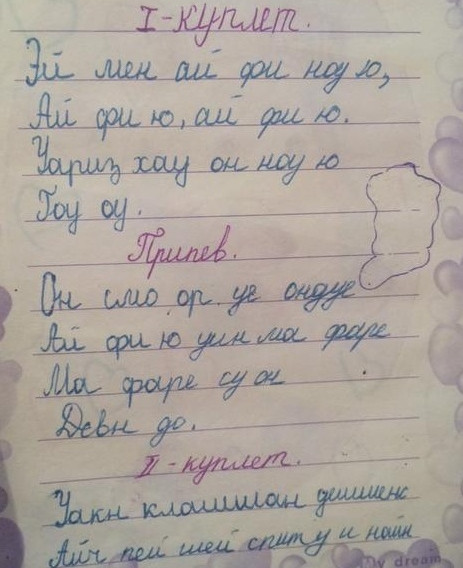 I-куплет.
Эй мен ай фи ноу ю,
Ай фи ю, ай фи ю.
Уариз хау он ноу ю
Гоу оу.
Припев.
Он смо ор уе ондуе
Ай фи ю уин ма фаре
Ма фаре су он
Девн до.
II-куплет.
Уакн клашишан дишиенс
Айч пей шей спит у и найн
My dream